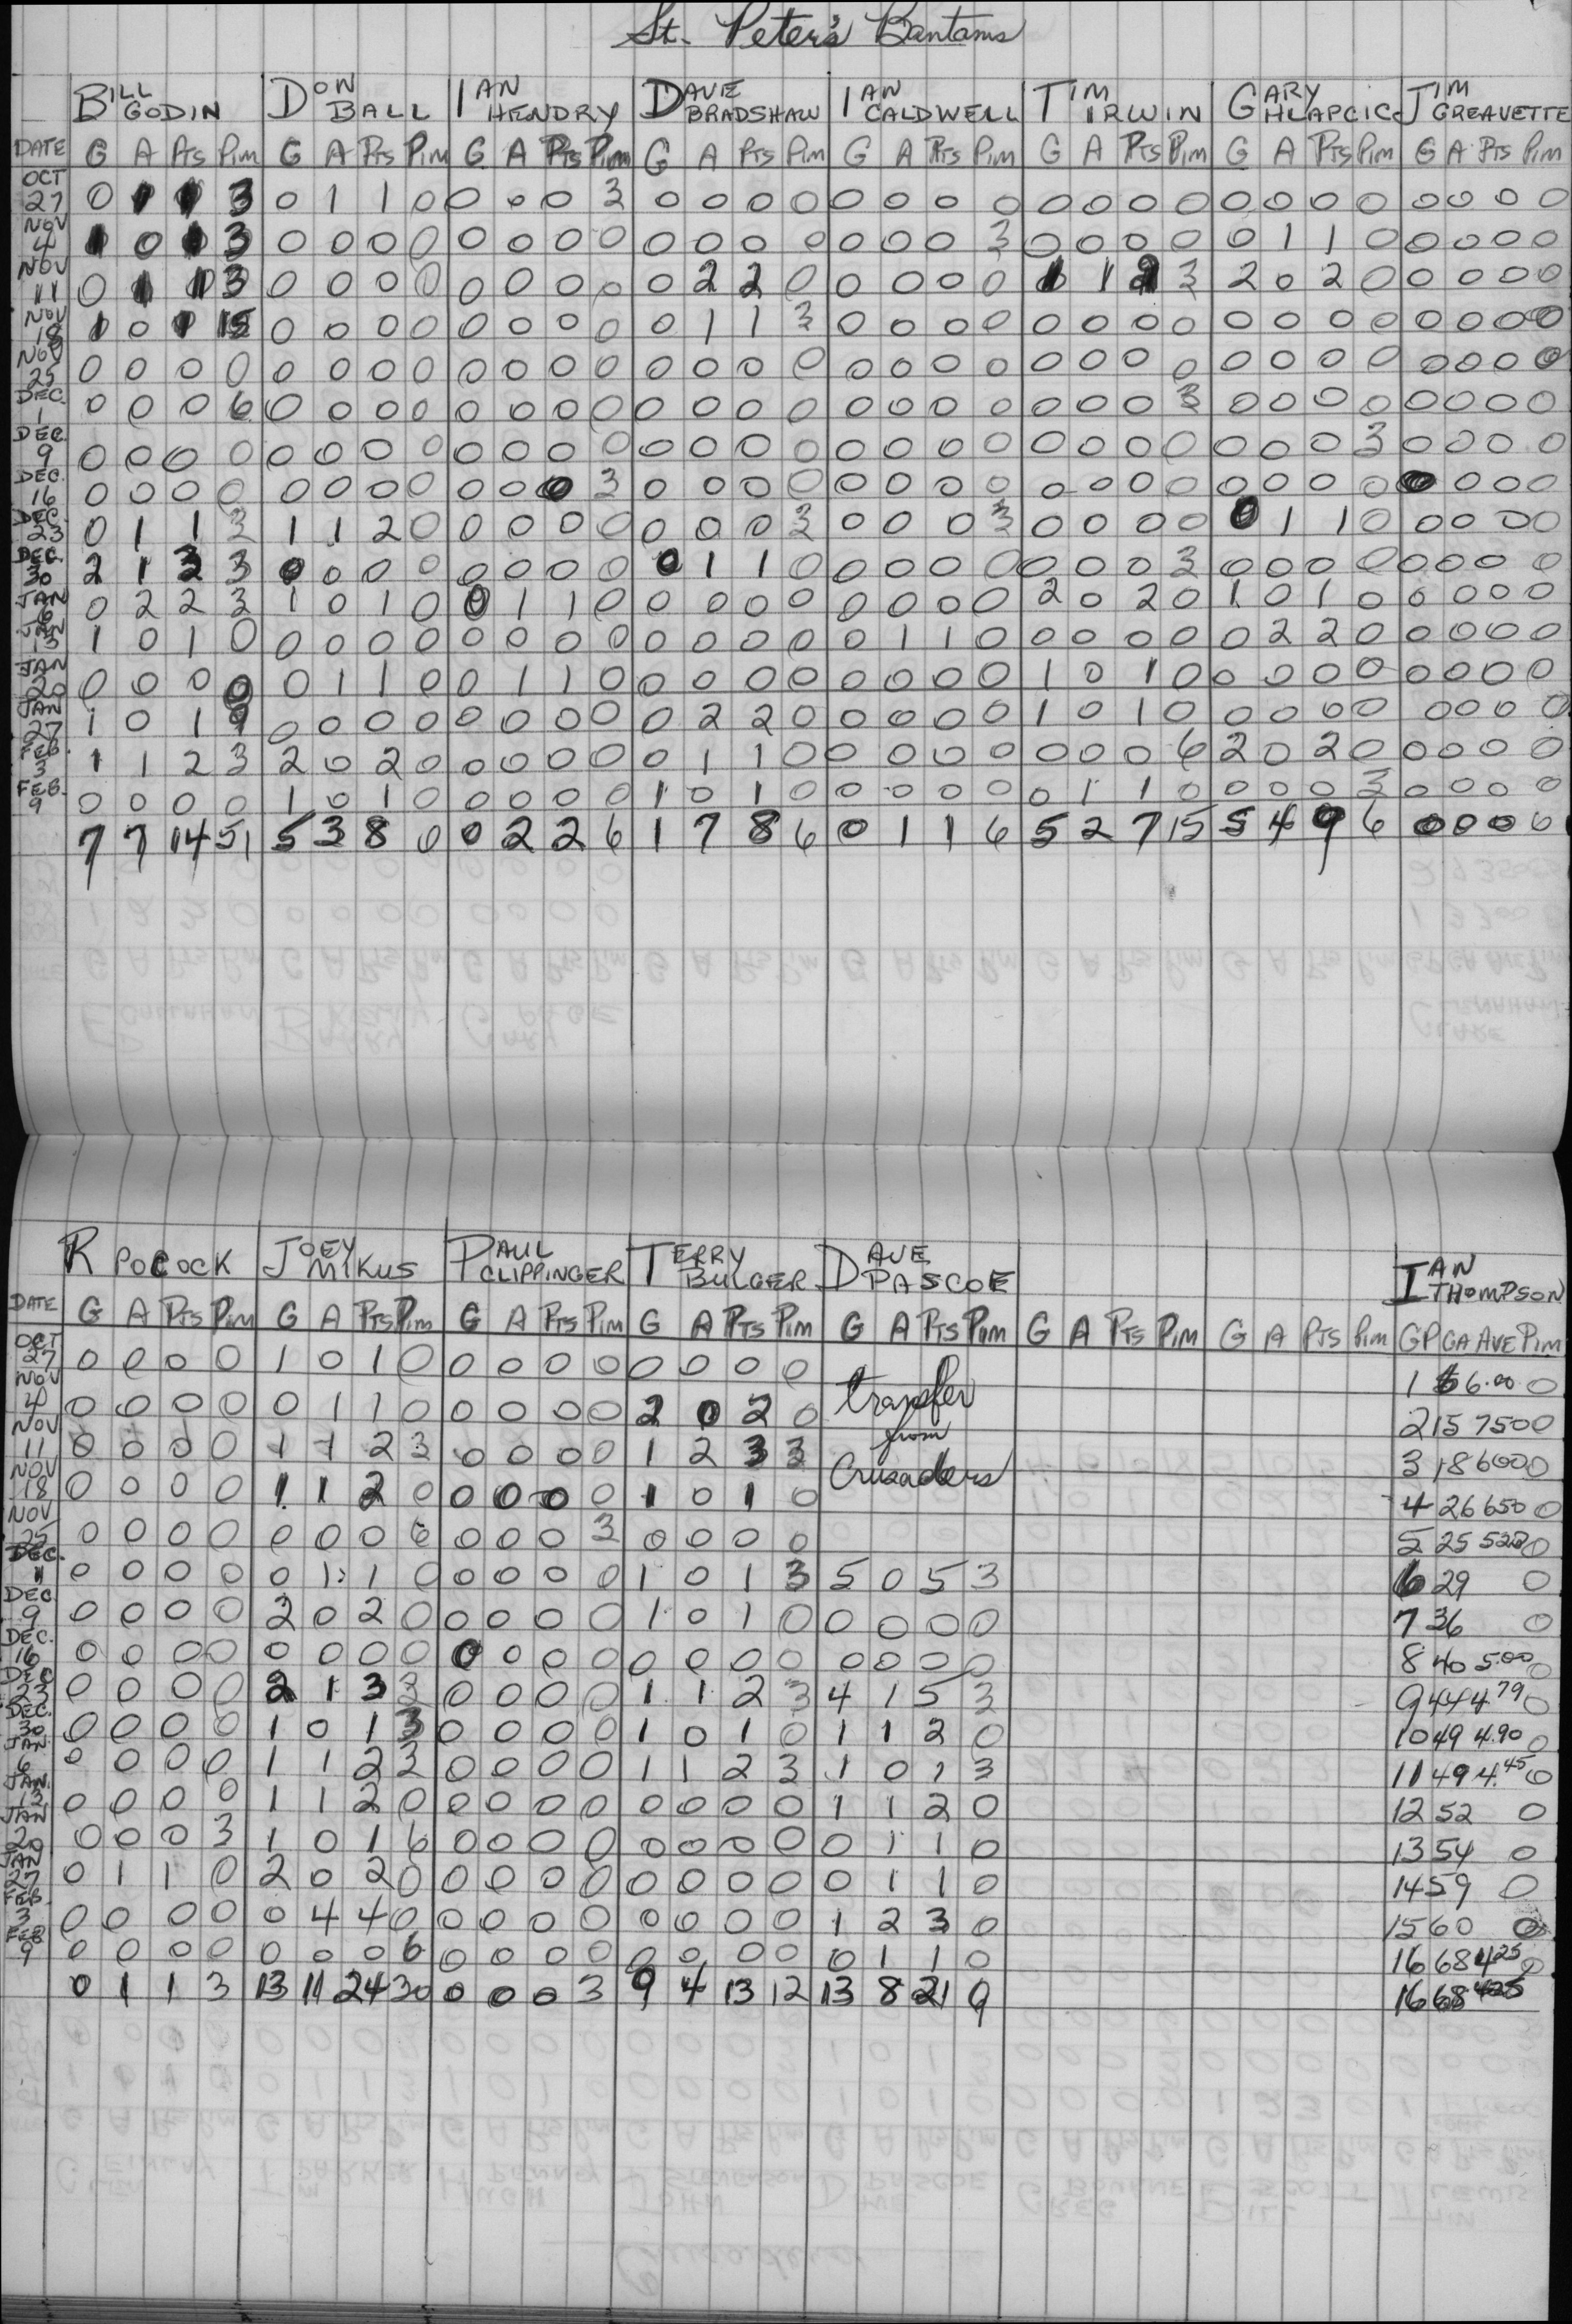 St. Peter's Bantams
BILL GODIN DON BALL IAN HENDRY DAVE BRADSHAW IAN CALDWELL TIM IRWIN GARY HLAPCIC JIM GREAVETTE
DATE G A PTS PIM G A PTS PIM G A PTS PIM G A PTS PIM G A PTS PIM G A PTS PIM G A PTS PIM G A PTS PIM
OCT 27 0 1 1 3 0 1 1 0 0 0 0 3 0 0 0 0 0 0 0 0 0 0 0 0 0 0 0 0 0 0 0 0
NOV 4 1 0 1 3 0 0 0 0 0 0 0 0 0 0 0 0 0 0 0 3 0 0 0 0 0 1 1 0 0 0 0 0
NOV 11 0 1 1 3 0 0 0 0 0 0 0 0 0 2 2 0 0 0 0 0 1 1 2 3 2 0 2 0 0 0 0 0
NOV 18 1 0 1 15 0 0 0 0 0 0 0 0 0 1 1 3 0 0 0 0 0 0 0 0 0 0 0 0 0 0 0 0
NOV 25 0 0 0 0 0 0 0 0 0 0 0 0 0 0 0 0 0 0 0 0 0 0 0 0 0 0 0 0 0 0 0 0
DEC. 1 0 0 0 6 0 0 0 0 0 0 0 0 0 0 0 0 0 0 0 0 0 0 0 3 0 0 0 0 0 0 0 0
DEC. 9 0 0 0 0 0 0 0 0 0 0 0 0 0 0 0 0 0 0 0 0 0 0 0 0 0 0 0 3 0 0 0 0
DEC. 16 0 0 0 0 0 0 0 0 0 0 0 3 0 0 0 0 0 0 0 0 0 0 0 0 0 0 0 0 0 0 0 0
DEC. 23 0 1 1 3 1 1 2 0 0 0 0 0 0 0 0 3 0 0 0 3 0 0 0 0 0 1 1 0 0 0 0 0
DEC. 30 2 1 3 3 0 0 0 0 0 0 0 0 0 1 1 0 0 0 0 0 0 0 0 3 0 0 0 0 0 0 0 0
JAN 6 0 2 2 3 1 0 1 0 0 1 1 0 0 0 0 0 0 0 0 0 2 0 2 0 1 0 1 0 0 0 0 0
JAN 13 1 0 1 0 0 0 0 0 0 0 0 0 0 0 0 0 0 1 1 0 0 0 0 0 0 2 2 0 0 0 0 0
JAN 20 0 0 0 0 0 1 1 0 0 1 1 0 0 0 0 0 0 0 0 0 1 0 1 0 0 0 0 0 0 0 0 0
JAN 27 1 0 1 9 0 0 0 0 0 0 0 0 0 2 2 0 0 0 0 0 1 0 1 0 0 0 0 0 0 0 0 0
FEB. 3 1 1 2 3 2 0 2 0 0 0 0 0 0 1 1 0 0 0 0 0 0 0 0 6 2 0 2 0 0 0 0 0
FEB. 9 0 0 0 0 1 0 1 0 0 0 0 0 1 0 1 0 0 0 0 0 0 1 1 0 0 0 0 3 0 0 0 0
7 7 14 51 5 3 8 0 0 2 2 6 1 7 8 6 0 1 1 6 5 2 7 15 5 4 9 6 0 0 0 0
R POCOCK JOEY MIKUS PAUL CLIPPINGER TERRY BULGER DAVE PASCOE IAN THOMPSON
DATE G A PTS PIM G A PTS PIM G A PTS PIM G A PTS PIM G A PTS PIM G A PTS PIM G A PTS PIM GP GA AVE PIM
OCT 27 0 0 0 0 1 0 1 0 0 0 0 0 0 0 0 0 transfer 1 6 6.00 0
NOV 4 0 0 0 0 0 1 1 0 0 0 0 0 2 0 2 0 from 2 15 750 0
NOV 11 0 0 0 0 1 1 2 3 0 0 0 0 1 2 3 3 Crusaders 3 18 600 0
NOV 18 0 0 0 0 1 1 2 0 0 0 0 0 1 0 1 0 4 26 650 0
NOV 25 0 0 0 0 0 0 0 6 0 0 0 3 0 0 0 0 5 25 0
DEC. 1 0 0 0 0 0 1 1 0 0 0 0 0 1 0 1 3 5 0 5 3 6 29 0
DEC. 9 0 0 0 0 2 0 2 0 0 0 0 0 1 0 1 0 0 0 0 0 7 36 0
DEC. 16 0 0 0 0 0 0 0 0 0 0 0 0 0 0 0 0 0 0 0 0 8 40 5.00 0
DEC 23 0 0 0 0 2 1 3 3 0 0 0 0 1 1 2 3 4 1 5 3 9 44 4.79 0
DEC. 30 0 0 0 0 1 0 1 3 0 0 0 0 1 0 1 0 1 1 2 0 10 49 4.90 0
JAN 6 0 0 0 0 1 1 2 3 0 0 0 0 1 1 2 3 1 0 1 3 11 49 4.45 0
JAN. 13 0 0 0 0 1 1 2 0 0 0 0 0 0 0 0 0 1 1 2 0 12 52 0
JAN 20 0 0 0 3 1 0 1 6 0 0 0 0 0 0 0 0 0 1 1 0 13 54 0
JAN 27 0 1 1 0 2 0 2 0 0 0 0 0 0 0 0 0 0 1 1 0 14 59 0
FEB. 3 0 0 0 0 0 4 4 0 0 0 0 0 0 0 0 0 1 2 3 0 15 60 0
FEB 9 0 0 0 0 0 0 0 6 0 0 0 0 0 0 0 0 0 1 1 0 16 68 4.25 0
0 1 1 3 13 11 24 30 0 0 0 3 9 4 13 12 13 8 21 9 16 68 4.25